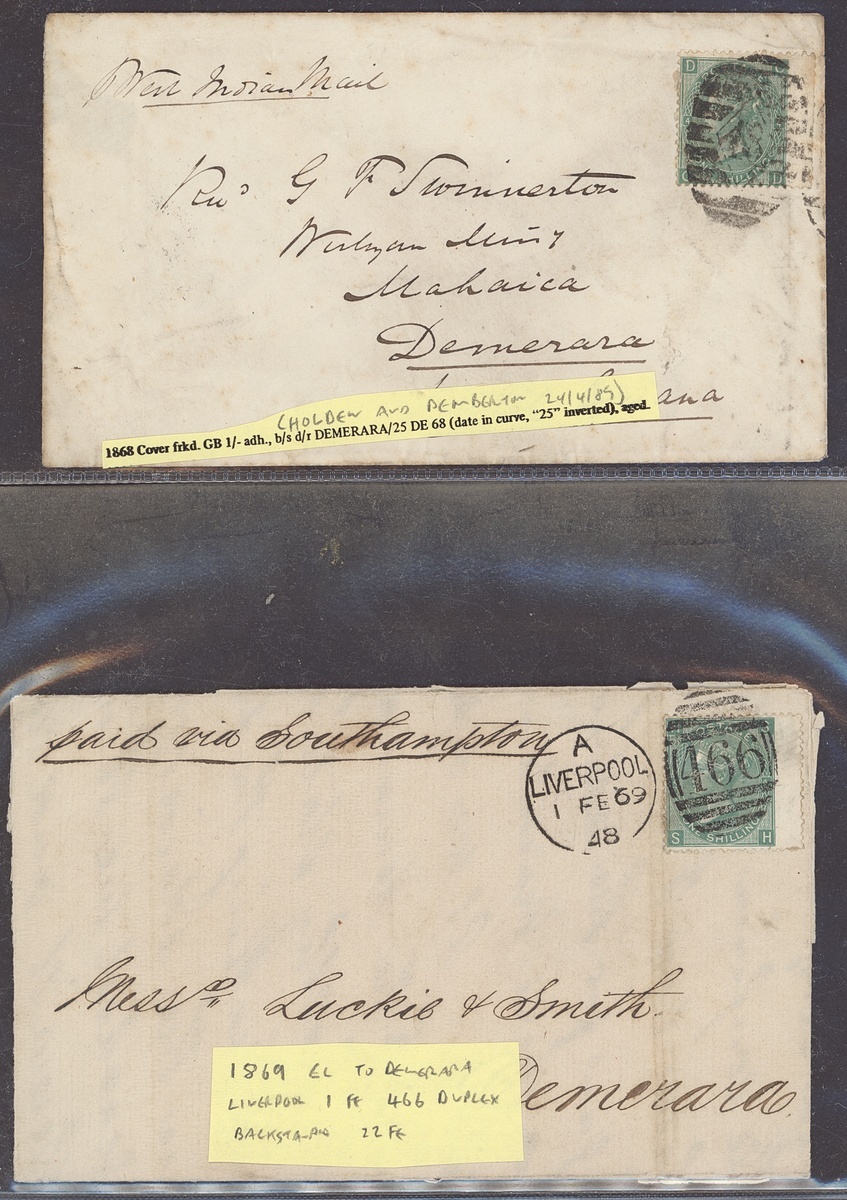 West Indian Mail
D
C D
Revd G F Swinnerton
Wesleyan Minr
Mahaica
Demerara
ana
(HOLDEN AND PEMBERTON 24/4/89)
1868 Cover frkd. GB 1/- adh., b/s d/r DEMERARA/25 DE 68 (date in curve, “25” inverted), aged.
paid via Southampton
A
LIVERPOOL
1 FE 69
48
466
SHILLING
S H
Messrs Luckie & Smith.
Demerara.
1869 EL TO DEMERARA
LIVERPOOL 1 FE 466 DUPLEX
BACKSTAMP 22 FE